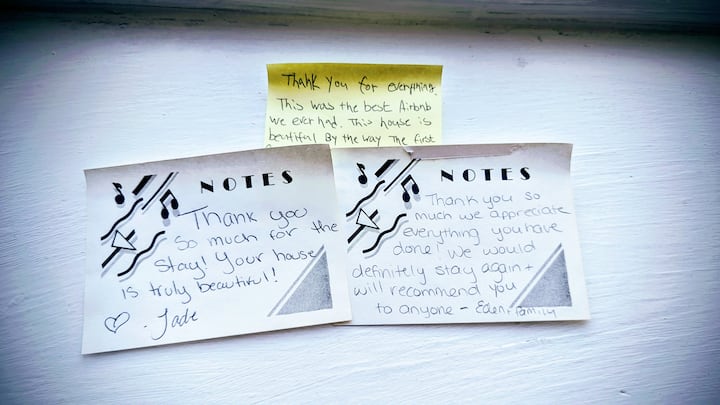 Thank You for everything.
This was the best Airbnb
we ever had. This house is
beatiful By the way The first
NOTES
Thank you
so much for the
stay! Your house
is truly beautiful!
♡ - Jade
NOTES
Thank you so
much we appreciate
everything you have
done! We would
definitely stay again +
will recommend you
to anyone - Eden + family